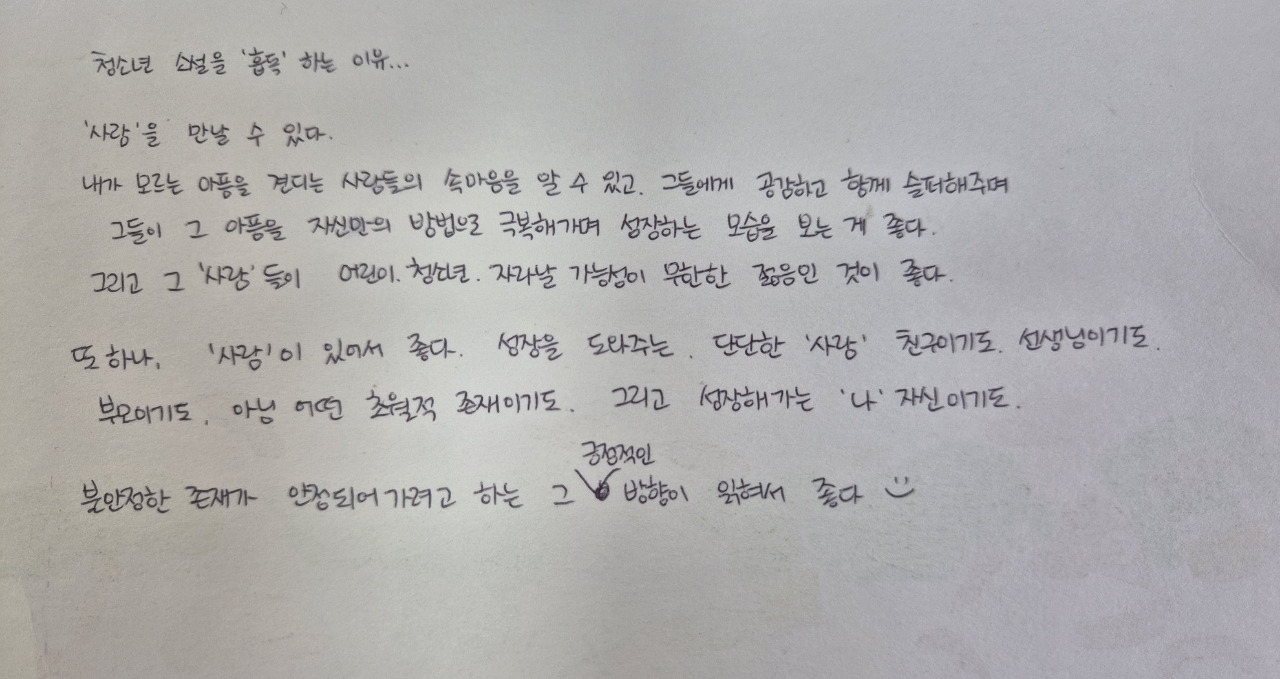 청소년 소설을 '흡독' 하는 이유...
'사람'을 만날 수 있다.
내가 모르는 아픔을 견디는 사람들의 속마음을 알 수 있고, 그들에게 공감하고 함께 슬퍼해주며
그들이 그 아픔을 자신만의 방법으로 극복해가며 성장하는 모습을 보는 게 좋다.
그리고 그 '사람'들이 어린이, 청소년, 자라날 가능성이 무한한 젊음인 것이 좋다.
또 하나, '사람'이 있어서 좋다. 성장을 도와주는, 단단한 '사람' 친구이기도, 선생님이기도,
부모이기도, 아님 어떤 초월적 존재이기도, 그리고 성장해가는 '나' 자신이기도.
긍정적인
불안정한 존재가 안정되어가려고 하는 그 방향이 읽혀서 좋다 :)